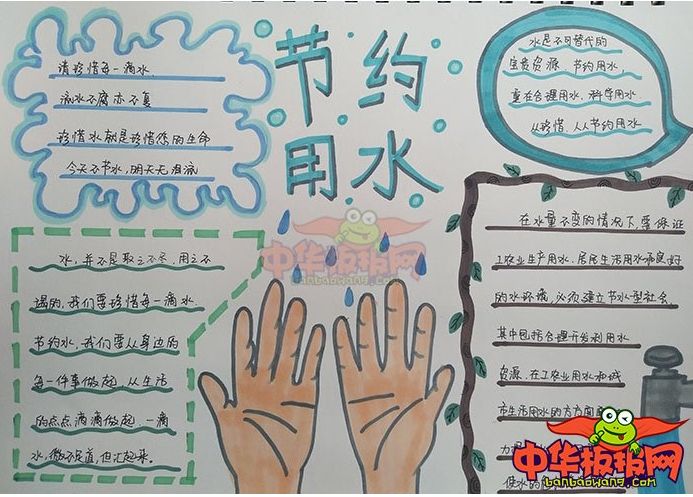 节约
用水
请珍惜每一滴水
流水不腐亦不复
珍惜水就是珍惜您的生命
今天不节水,明天无泪流
水是不可替代的
宝贵资源 节约用水,
重在合理用水,科学用水
从珍惜、人人节约用水
水,并不是取之不尽,用之不
竭的,我们要珍惜每一滴水.
节约水,我们要从身边的
每一件事做起,从生活
的点点滴滴做起 一滴
水,微不足道,但汇起来。
在水量不变的情况下,要保证
工农业生产用水、居民生活用水和良好
的水环境,必须建立节水型社会
其中包括合理开发利用水
资源,在工农业用水和城
市生活用水的方方面
力
使水的
中华板报网
banbaowang.com
中华板报网
banbaowang.com